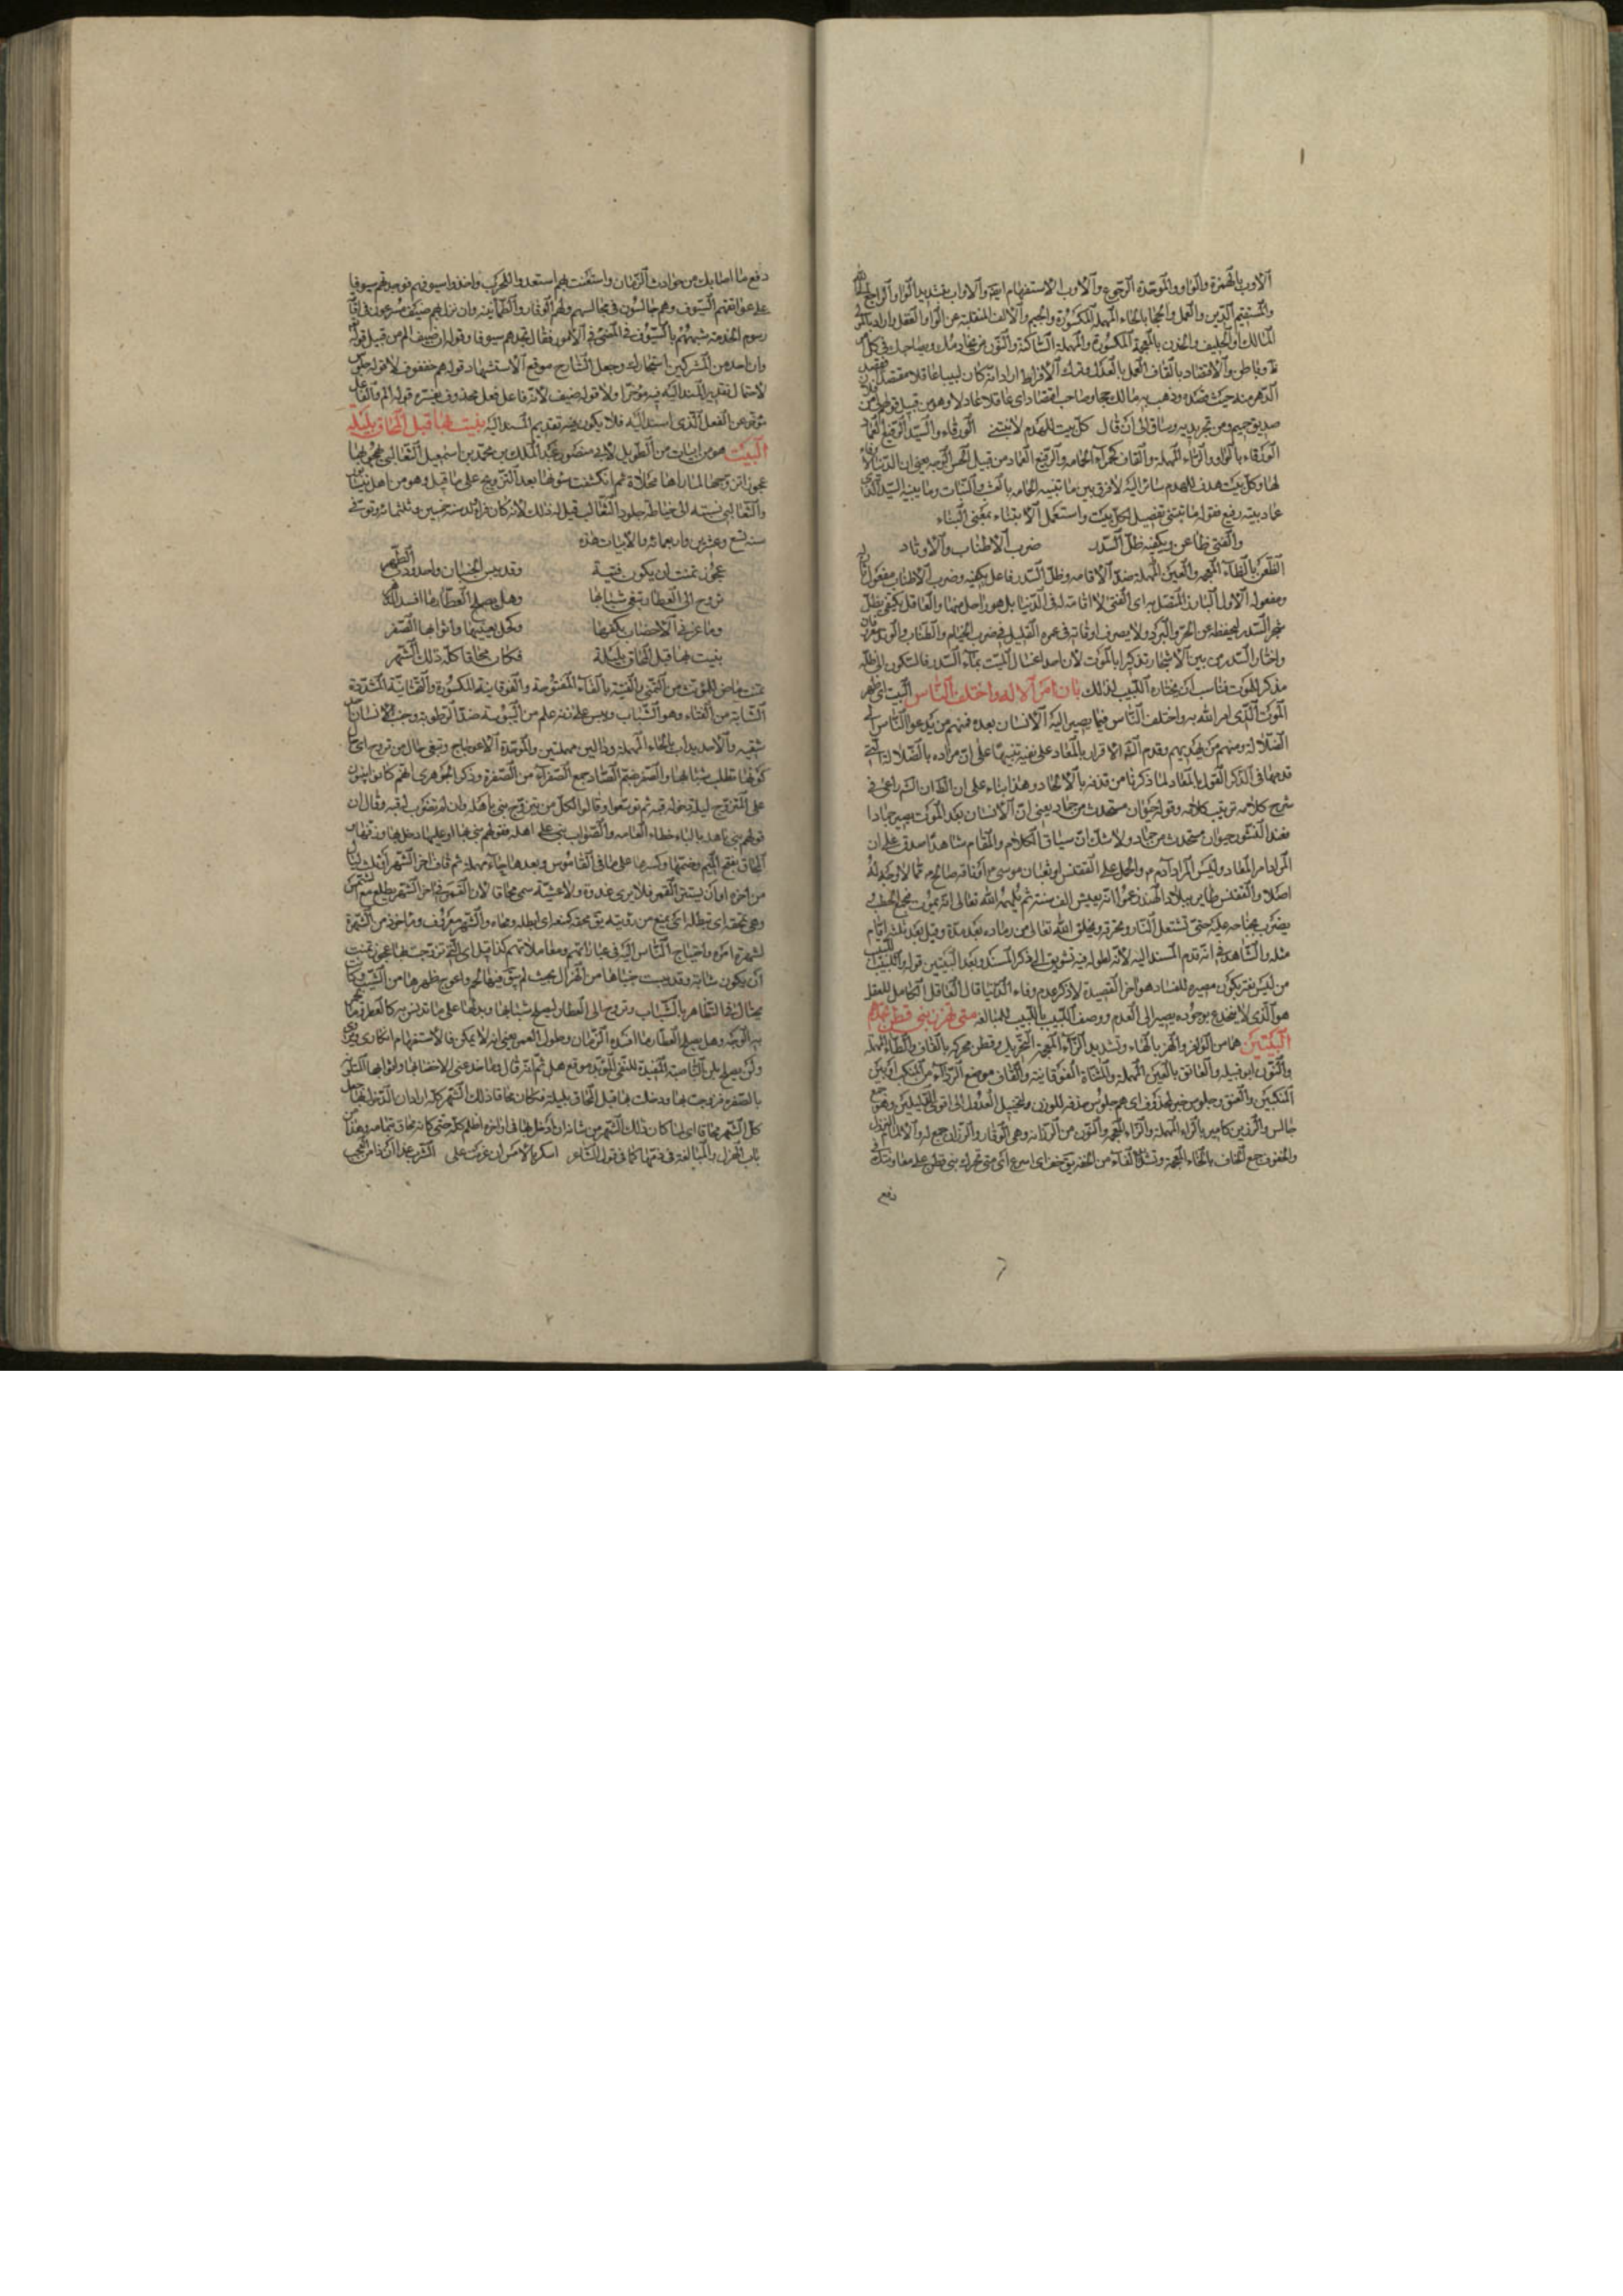 الأوب بالهمزة والواو والموحدة الرجوع والأوب الاستفهام والأواب بتشديد الواو الراجع الى الله
والمستقيم الدين والعمل والحجا بالحاء المهملة المكسورة والجيم والألف المنقلبة عن الواو العقل واراد بالمولى
المالك او الحليف والخدن بالمعجمة المكسورة والمهملة الساكنة والنون من يخادنك ويصاحبك في كل
ظاهر وباطن والاقتصاد بالقاف العمل بالعدل وترك الافراط اراد انه كان لبيبا عاقلا مقتصدا
الدهر منه حيث قصده وذهب به مالك حجا وصاحب اقتصاد اى عاقلا عادلا وهو من قبيل قولهم لى من
صديق حميم ومن تجريدية وساق الى ان قال كل بيت للهدم لا تبتنى الورقاء والسيد الرفيع العماد
الورقاء بالواو والراء المهملة والقاف كحمراء الحمامة والرفيع العماد من قبيل الحسن الوجه يعنى ان الدنيا لا وفاء
لها وكل بيت هدف للهدم سائر اليه لا فرق بين ما تبنيه الحمامة بالغث والنبات وما يبنيه السيد الذى
عماد بيته رفيع فقوله ما تبتنى تفصيل لكل بيت واستعمل الابتناء بمعنى البناء
والفتى ظاعن ويكفيه ظل السدر ضرب الاطناب والاوتاد
الظعن بالظاء المعجمة والعين المهملة ضد الاقامة وظل السدر فاعل يكفيه وضرب الاطناب مفعوله الثانى
ومفعوله الاول البارز المتصل به اى الفتى لا اقامة له فى الدنيا بل هو راحل عنها والعاقل يكتفى بظل
شجر السدر ليحفظه عن الحر والبرد ولا يصرف اوقاته فى عمره القليل فى ضرب الخيام والطناب والوتد
واختار السدر من بين الاشجار تذكيرا بالموت لان اصل اغتسال الميت بماء السدر فالسكون الى ظله
مذكر للموت فناسب ان يختاره اللبيب لذلك بان امر الاله واختلف الناس البيت اى ظهر
الموت الذى امر الله به واختلف الناس فيما يصير اليه الانسان بعده فمنهم من يدعو الناس الى
الضلالة ومنهم من يهديهم وقدم الاقرار بالمعاد على نفيه تنبيها على ان مراده بالضلالة التى
قدمها فى الذكر القول بالمعاد لما ذكرنا من قذفه بالالحاد وهذا بناء على ان الشراعى فى
شرح كلامه تربيب كلامه وقوله حيوان مستحدث من جماد يعنى ان الانسان بعد الموت يصير جمادا
فعند النشور حيوان مستحدث من جماد ولا شك ان سياق الكلام والمقام شاهدا صدق على ان
المراد امر المعاد وليس المراد آدم م والحمل على الققنس او ثعبان موسى م او ناقة صالح م مما لا وجه له
اصلا والققنس طاير ببلاد الهند زعموا انه يعيش الف سنة ثم يلهمه الله تعالى انه يموت فيجمع الحطب
يضرب بجناحه عليه حتى تشتعل النار ويحترق ويخلق الله تعالى من رماده بعد مدة وقيل بعد ثلثة ايام
مثله والشاهد فى انه قدم المسند اليه لانه اطوله فيه تشويق الى ذكر المسند وبعد البيتين قوله واللبيب اللبيب
من ليس يغتر بكون مصيره للفساد هو آخر القصيدة لا ذكر عدم وفاء الدنيا قال العاقل الكامل العقل
هو الذى لا ينخدع بوجوده يصير الى العدم ووصف اللبيب باللبيب للمبالغة متى تهزز بنى قطن تجدهم
البيتين هما من الوافر والهز بالهاء وتشديد الزاء المعجمة التحريك وقطن محركة بالقاف والطاء المهملة
والنون ابو قبيلة والعاتق بالعين المهملة والمثناة الفوقانية والقاف موضع الرداء من المنكب او بين
المنكبين والعنق وجلوس خبر لمحذوف اى هم جلوس حذف للوزن ولتخييل العدول الى اقوى الدليلين وهو جمع
جالس والرزين كامير بالراء المهملة والزاء المعجمة والنون من الرزانة وهى الوقار والرزان جمع له والالمام النزول
والخفوف جمع الخاف بالخاء المعجمة وتشديد الفاء من الخفة يق خف اى اسرع اى متى تحرك بنى قطن على معاونتك فى
دفع
دفع ما اصابك من حوادث الزمان واستعنت بهم استعدوا للحرب واخذوا سيوفهم فوجدتهم سيوفا
على عواتقهم السيوف وهم جالسون فى مجالسهم ولهم الوقار والطمانينة وان نزل بهم ضيف مسرعون فى اقامة
رسوم الخدمة شبههم بالسيوف فى المضى فى الامور فقال تجدهم سيوفا وقوله ان ضيف الم من قبيل قوله
وان احد من المشركين استجارك وجعل الشارح موقع الاستشهاد قوله هم خفوف لا قوله جلوس
لاحتمال تقدير المسند اليه فيه مؤخرا ولا قوله ضيف لانه فاعل فعل محذوف يفسره قوله الم والفاعل
مؤخر عن الفعل الذى اسند اليه فلا يكون فيه تقديم المسند اليه بنيت بها قبل المحاق بليلة
البيت هو من ابيات من الطويل لابى منصور عبد الملك بن محمد بن اسمعيل الثعالبى يهجو بها
عجوزا تزوجها لما راها محلاة ثم انكشفت سوءتها بعد التزويج على ما قيل وهو من اهل نيسابور
والثعالبى نسبته الى خياطة جلود الثعالب قيل له ذلك لانه كان فراء ولد سنة خمسين وثلثمائة وتوفى فى
سنة تسع وعشرين واربعمائة والابيات هذه
عجوز تمنت ان يكون فتية وقد يبس الجنبان واحدودب الظهر
تروح الى العطار تبغى شبابها وهل يصلح العطار ما افسد الدهر
وما غرنى الا خضاب بكفها وكحل بعينيها واثوابها الصفر
بنيت بها قبل المحاق بليلة فكان محاقا كله ذلك الشهر
تمنت ماض للمؤنث من التمنى والفتية بالفاء المفتوحة والفوقانية المكسورة والتحتانية المشددة
الشابة من الفتاء وهو الشباب ويبس على زنة علم من اليبوسة ضد الرطوبة وجنب الانسان
شقيه والاحديداب بالحاء المهملة ودالين مهملتين والموحدة الاعوجاج وتبغى حال من تروح اى حال
كونها تطلب شبابها والصفر بضم الصاد جمع الصفراء من الصفرة وذكر الجوهرى انهم كانوا يبنون
على المتزوج ليلة دخوله قبة ثم توسعوا وقالوا لكل من يتزوج بنى باهله وان لم تضرب له قبة وقال ان
قولهم بنى باهله بالباء خطاء العامة والصواب بنى على اهله فقولهم بنى بها او عليها دخل بها وزفها
المحاق بفتح الميم وضمها وكسرها على ما فى القاموس وبعدها حاء مهملة ثم قاف اخر الشهر او ثلث ليال
من اخره او ان يستتر القمر فلا يرى غدوة ولا عشية سمى محاقا لان القمر فى اخر الشهر يطلع مع الشمس
وهى تمحقه اى تبطله اى يمنع من رؤيته يق محقه كمنعه اى ابطله ومحاه والشهر معروف وماخوذ من الشهرة
لشهرة امره واحتياج الناس اليه فى عباداتهم ومعاملاتهم كذا قيل اى تزوجت بها عجوز تمنت
ان يكون شابة وقد يبست جنباها من الهزال بحيث لم يبق فيها لحم واعوج ظهرها من الشيب وكانت
تحتال فى التظاهر بالشباب وتروح الى العطار ليصلح شبابها ويدلها على ما تدلس به كالعطر
به الوجه وهل يصلح العطار ما افسده الزمان وطول العمر يعنى انه لا يمكن فالاستفهام انكارى
ولن يصلح بلن الناصبة المفيدة للنفى المؤبد موقع هل ثم انه قال وما خدعنى الا خضابها واثوابها المتلون
بالصفرة فزوجت بها ودخلت بها قبل المحاق بليلة فكان محاقا ذلك الشهر كله اراد ان الدخول بها جعل
كل الشهر محاقا اى لما كان ذلك الشهر من شانه ان ادخل بها فى اواخره اظلم كله حتى كانه محاق بتمامه وهذا من
باب الهزل والمبالغة فى ذمها كما فى قول الشاعر اسكر بالامس ان عزمت على الشرب غدا ان ذا من العجب